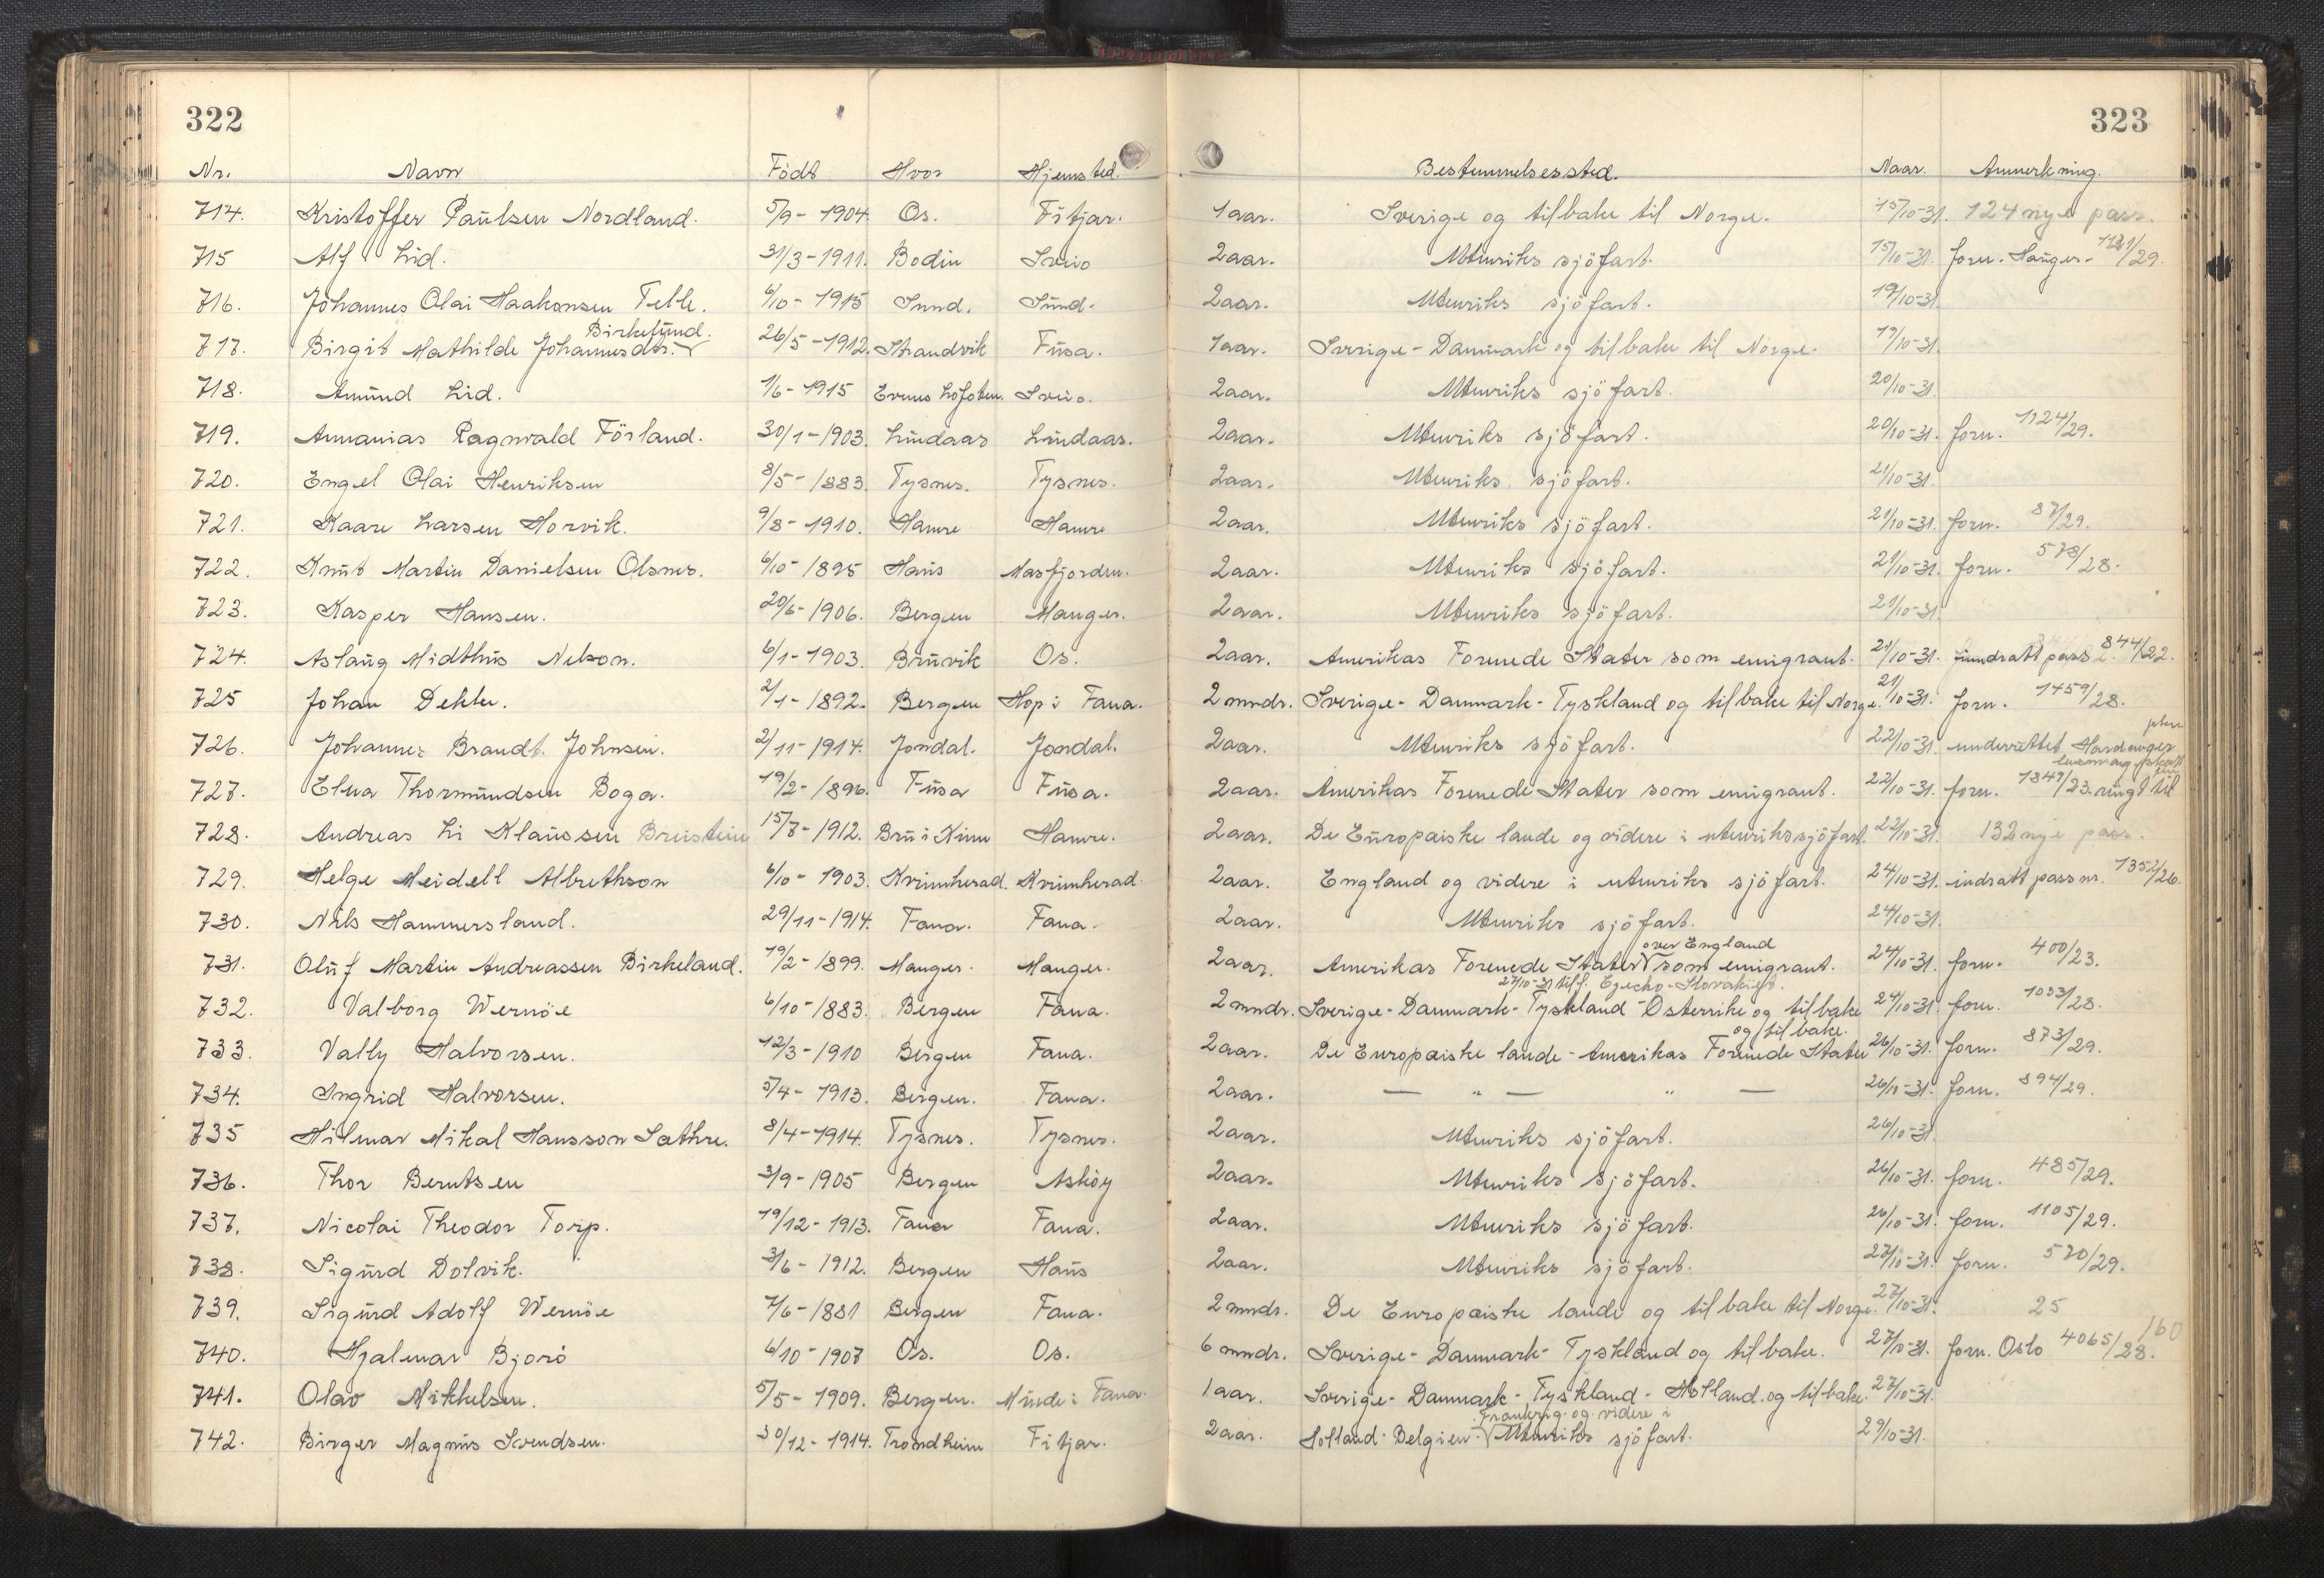 322
323
Nr. Navn Födt Hvor Hjemsted. Bestemmelsessted. Naar. Anmerkning.
714. Kristoffer Paulsen Nordland. 5/9-1904. Os. Fitjar. 1 aar. Sverige og tilbake til Norge. 15/10-31. 124 nye pass.
715 Alf Lid. 31/3-1911. Bodin Sveio 2 aar. Utenriks sjöfart. 15/10-31. forn. Hauges. /29.
716. Johannes Olai Haakonsen Telle. 6/10-1915 Sund. Sund. 2 aar. Utenriks sjöfart. 19/10-31.
Birkelund.
717. Birgit Mathilde Johannesdtr. 26/5-1912. Strandvik Fusa. 1 aar. Sverige-Danmark og tilbake til Norge. 19/10-31.
718. Amund Lid. 1/6-1915 Lofoten. Sveio. 2 aar. Utenriks sjöfart. 20/10-31.
719. Annanias Ragnvald Förland. 30/1-1903. Lindaas Lindaas. 2 aar. Utenriks sjöfart. 20/10-31. forn. 1124/29.
720. Engel Olai Henriksen 8/5-1883. Tysnes. Tysnes. 2 aar. Utenriks sjöfart. 21/10-31.
721. Kaare Larsen Horvik. 9/8-1910. Hamre Hamre 2 aar. Utenriks sjöfart. 21/10-31. forn. 87/29.
722. Knut Martin Danielsen Olsnes. 6/10-1895 Haus Masfjorden. 2 aar. Utenriks sjöfart. 21/10-31. forn. 578/28.
723. Kasper Hansen. 20/6-1906. Bergen Manger. 2 aar. Utenriks sjöfart. 21/10-31.
724. Aslaug Midthus Nelson. 6/1-1903. Bruvik Os. 2 aar. Amerikas Forenede Stater som emigrant. 21/10-31. inndratt pass 844/22.
725 Johan Dekke. 2/1-1892. Bergen Hop i Fana. 2 mndr. Sverige-Danmark-Tyskland og tilbake til Norge. 21/10-31. forn. 1459/28.
726. Johannes Brandt Johnsen. 2/11-1914. Jondal. Jondal. 2 aar. Utenriks sjöfart. 22/10-31. underrettet Hardanger
727. Elna Thormundsen Boga. 19/2-1896. Fusa Fusa. 2 aar. Amerikas Forenede Stater som emigrant. 22/10-31. forn. 1849/23.
728. Andreas Li Klaussen Breistein 15/7-1912. Bru i Kinn Hamre. 2 aar. De Europaiske lande og videre i utenrikssjöfart. 22/10-31. 132 nye pass.
729. Helge Meidell Albrethson 6/10-1903. Kvinnherad. Kvinnherad. 2 aar. England og videre i utenriks sjöfart. 24/10-31. indratt pass nr. 1352/26.
730. Nils Hammersland. 29/11-1914. Fana. Fana. 2 aar. Utenriks sjöfart. 24/10-31.
over England
731. Oluf Martin Andreassen Birkeland. 19/2-1899. Manger. Manger. 2 aar. Amerikas Forenede Stater som emigrant. 24/10-31. forn. 400/23.
27/10-31 tilf.
732. Valborg Wernöe 6/10-1883. Bergen Fana. 2 mndr. Sverige-Danmark-Tyskland-Osterrike og tilbake 24/10-31. forn. 1033/28.
og tilbake.
733. Vally Halvorsen. 12/3-1910 Bergen Fana. 2 aar. De Europaiske lande-Amerikas Forenede Stater 26/10-31. forn. 873/29.
734. Ingrid Halvorsen. 5/4-1913. Bergen. Fana. 2 aar. — " — " — 26/10-31. forn. 894/29.
735 Hilmar Mikal Hansson Sathre. 8/4-1914. Tysnes. Tysnes. 2 aar. Utenriks sjöfart. 26/10-31.
736. Thor Berntsen 3/9-1905 Bergen Asköy 2 aar. Utenriks sjöfart. 26/10-31. forn. 485/29.
737. Nicolai Theodor Torp. 19/12-1913. Fana Fana. 2 aar. Utenriks sjöfart. 26/10-31. forn. 1105/29.
738. Sigurd Dolvik. 3/6-1912. Bergen Haus 2 aar. Utenriks sjöfart. 27/10-31. forn. 570/29.
739. Sigurd Adolf Wernöe 7/6-1881 Bergen Fana. 2 mndr. De Europaiske lande og tilbake til Norge. 27/10-31. 25
740. Hjalmar Bjorö 6/10-1907 Os. Os. 6 mndr. Sverige-Danmark-Tyskland og tilbake. 27/10-31. forn. Oslo 4065/28. 160
741. Olav Mikkelsen. 5/5-1909. Bergen. Minde i Fana. 1 aar. Sverige-Danmark-Tyskland-Holland og tilbake. 27/10-31.
Frankrig og videre i
742. Birger Magnus Svendsen. 30/12-1914. Trondheim Fitjar. 2 aar. Holland-Belgien-Utenriks sjöfart. 29/10-31.